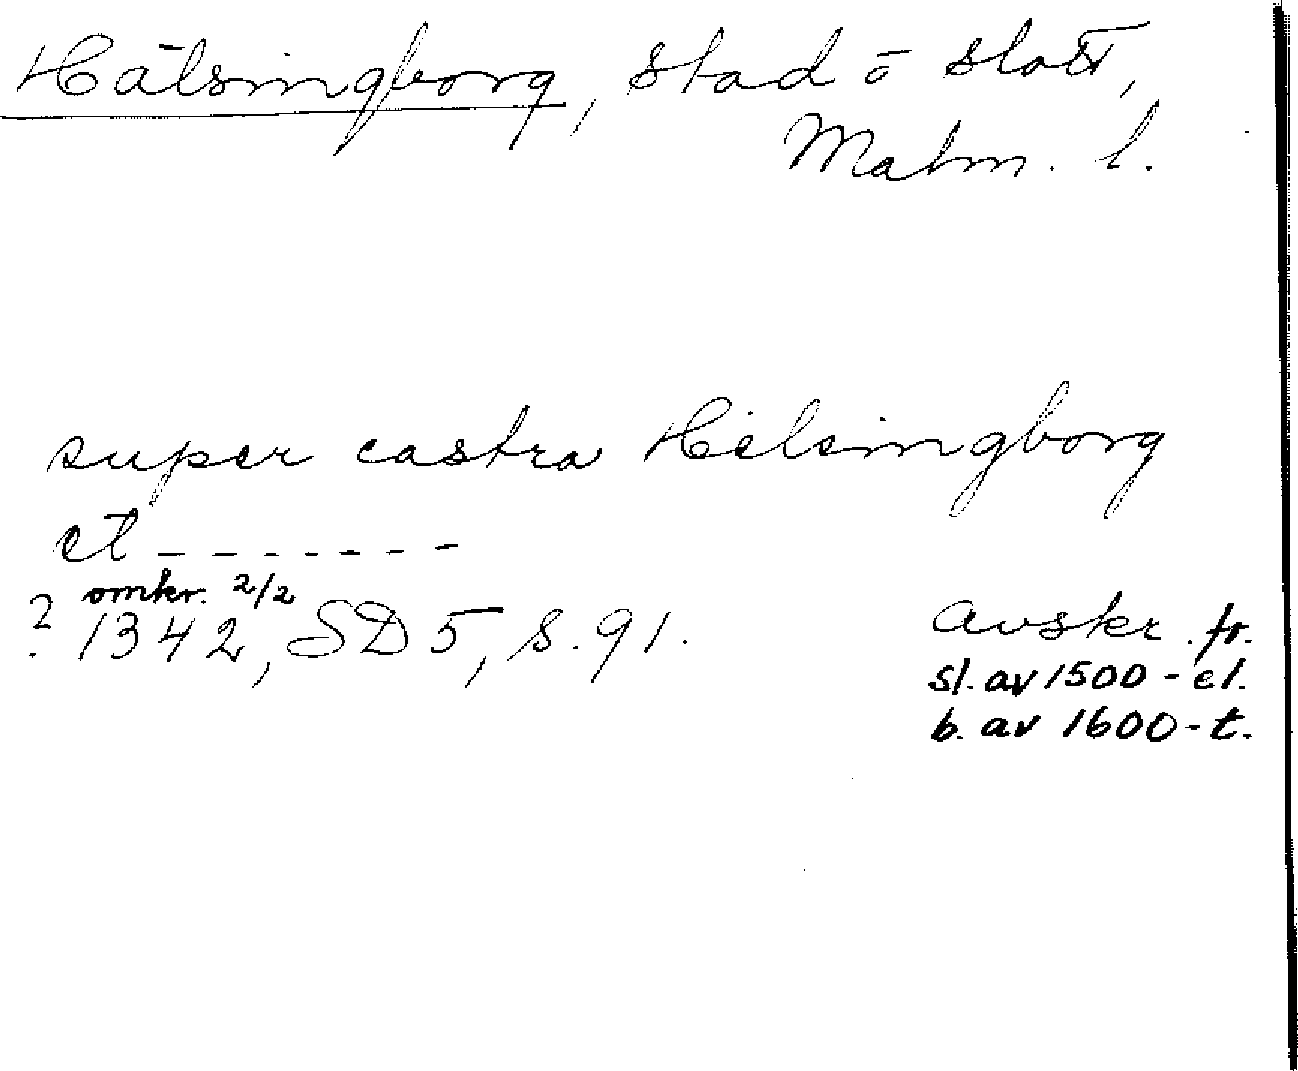 Hälsingborg, stad o slott,
Malm. l.
super castra Helsingborg
et - - - - - - -
omkr. 2/2
? 1342, SD 5, s. 91.
Avskr. fr.
sl. av 1500 - el.
b. av 1600 - t.